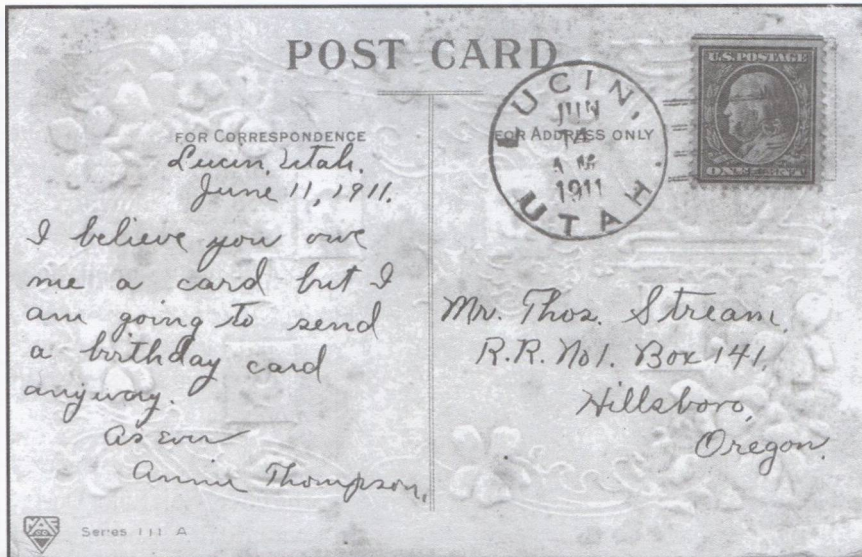 POST CARD
FOR CORRESPONDENCE
Lucin, Utah.
June 11, 1911.
I believe you owe
me a card but I
am going to send
a birthday card
anyway.
As ever
Annie Thompson.
Series 111 A
U.S. POSTAGE
LUCIN,
JUN
14
1911
UTAH.
FOR ADDRESS ONLY
Mr. Thos. Stream,
R.R. No 1. Box 141,
Hillsboro,
Oregon.